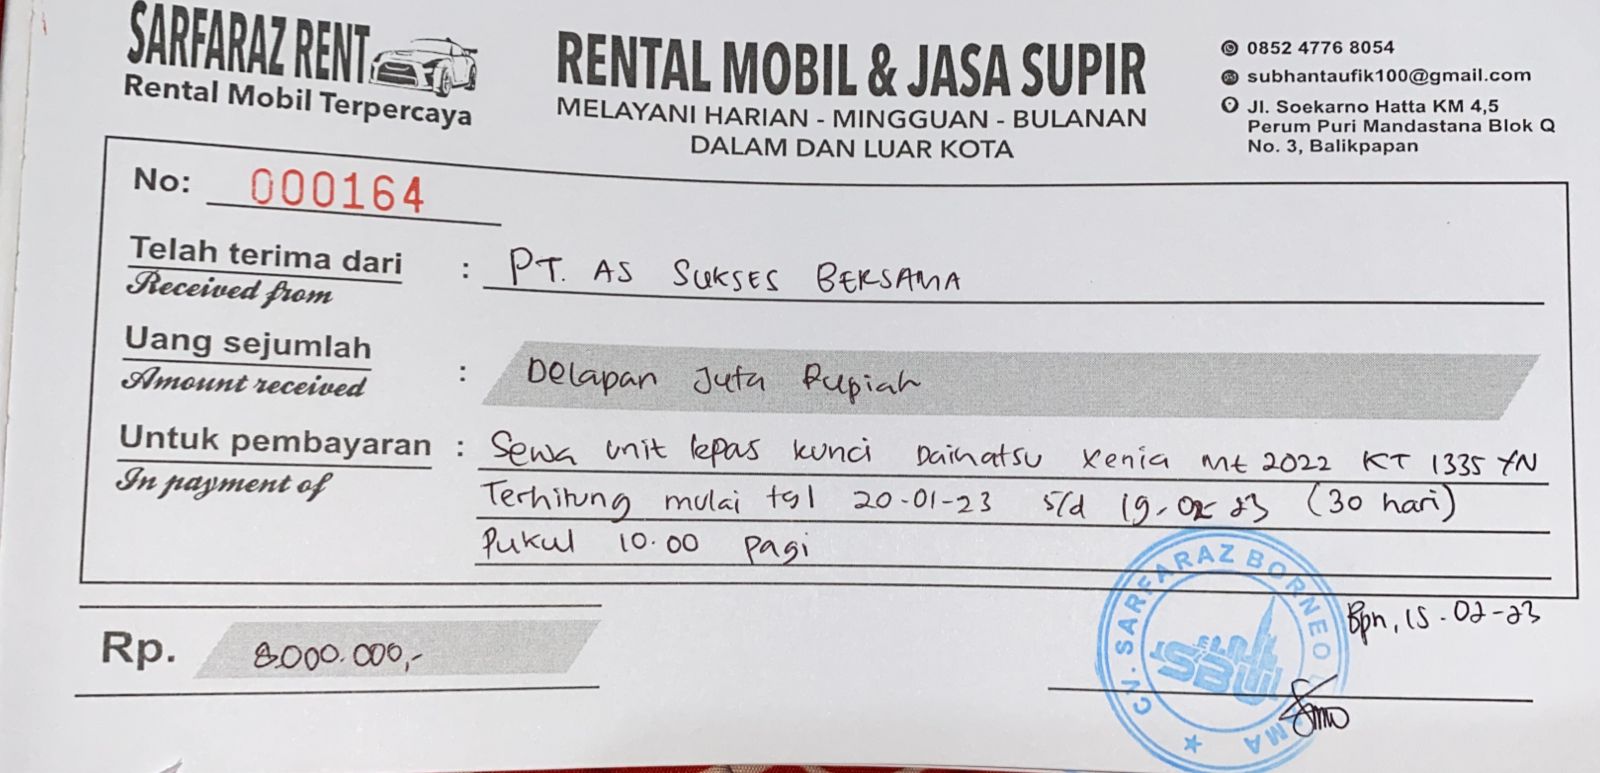 SARFARAZ RENT
Rental Mobil Terpercaya
RENTAL MOBIL & JASA SUPIR
MELAYANI HARIAN - MINGGUAN - BULANAN
DALAM DAN LUAR KOTA
0852 4776 8054
subhantaufik100@gmail.com
Jl. Soekarno Hatta KM 4,5
Perum Puri Mandastana Blok Q
No. 3, Balikpapan
No: 000164
Telah terima dari : PT. AS SUKSES BERSAMA
Received from
Uang sejumlah : Delapan Juta Rupiah
Amount received
Untuk pembayaran : Sewa unit lepas kunci Daihatsu Xenia Mt 2022 KT 1335 YN
In payment of
Terhitung mulai tgl 20-01-23 s/d 19-02-23 (30 hari)
Pukul 10.00 pagi
Rp. 8.000.000,-
Bpn, 15-02-23
CV. SARFARAZ BORNEO
SBU